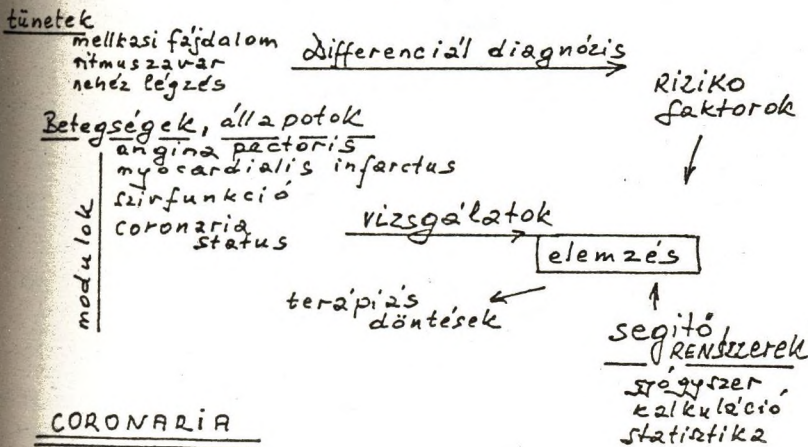 tünetek
mellkasi fájdalom
ritmuszavar
nehéz légzés
Differenciál diagnózis
RIZIKO
faktorok
Betegségek, állapotok
angina pectoris
myocardialis infarctus
szívfunkció
coronaria
status
modulok
vizsgálatok
elemzés
terápiás
döntések
segítő
RENSZZerek
gyógyszer
kalkuláció
statisztika
CORONARIA